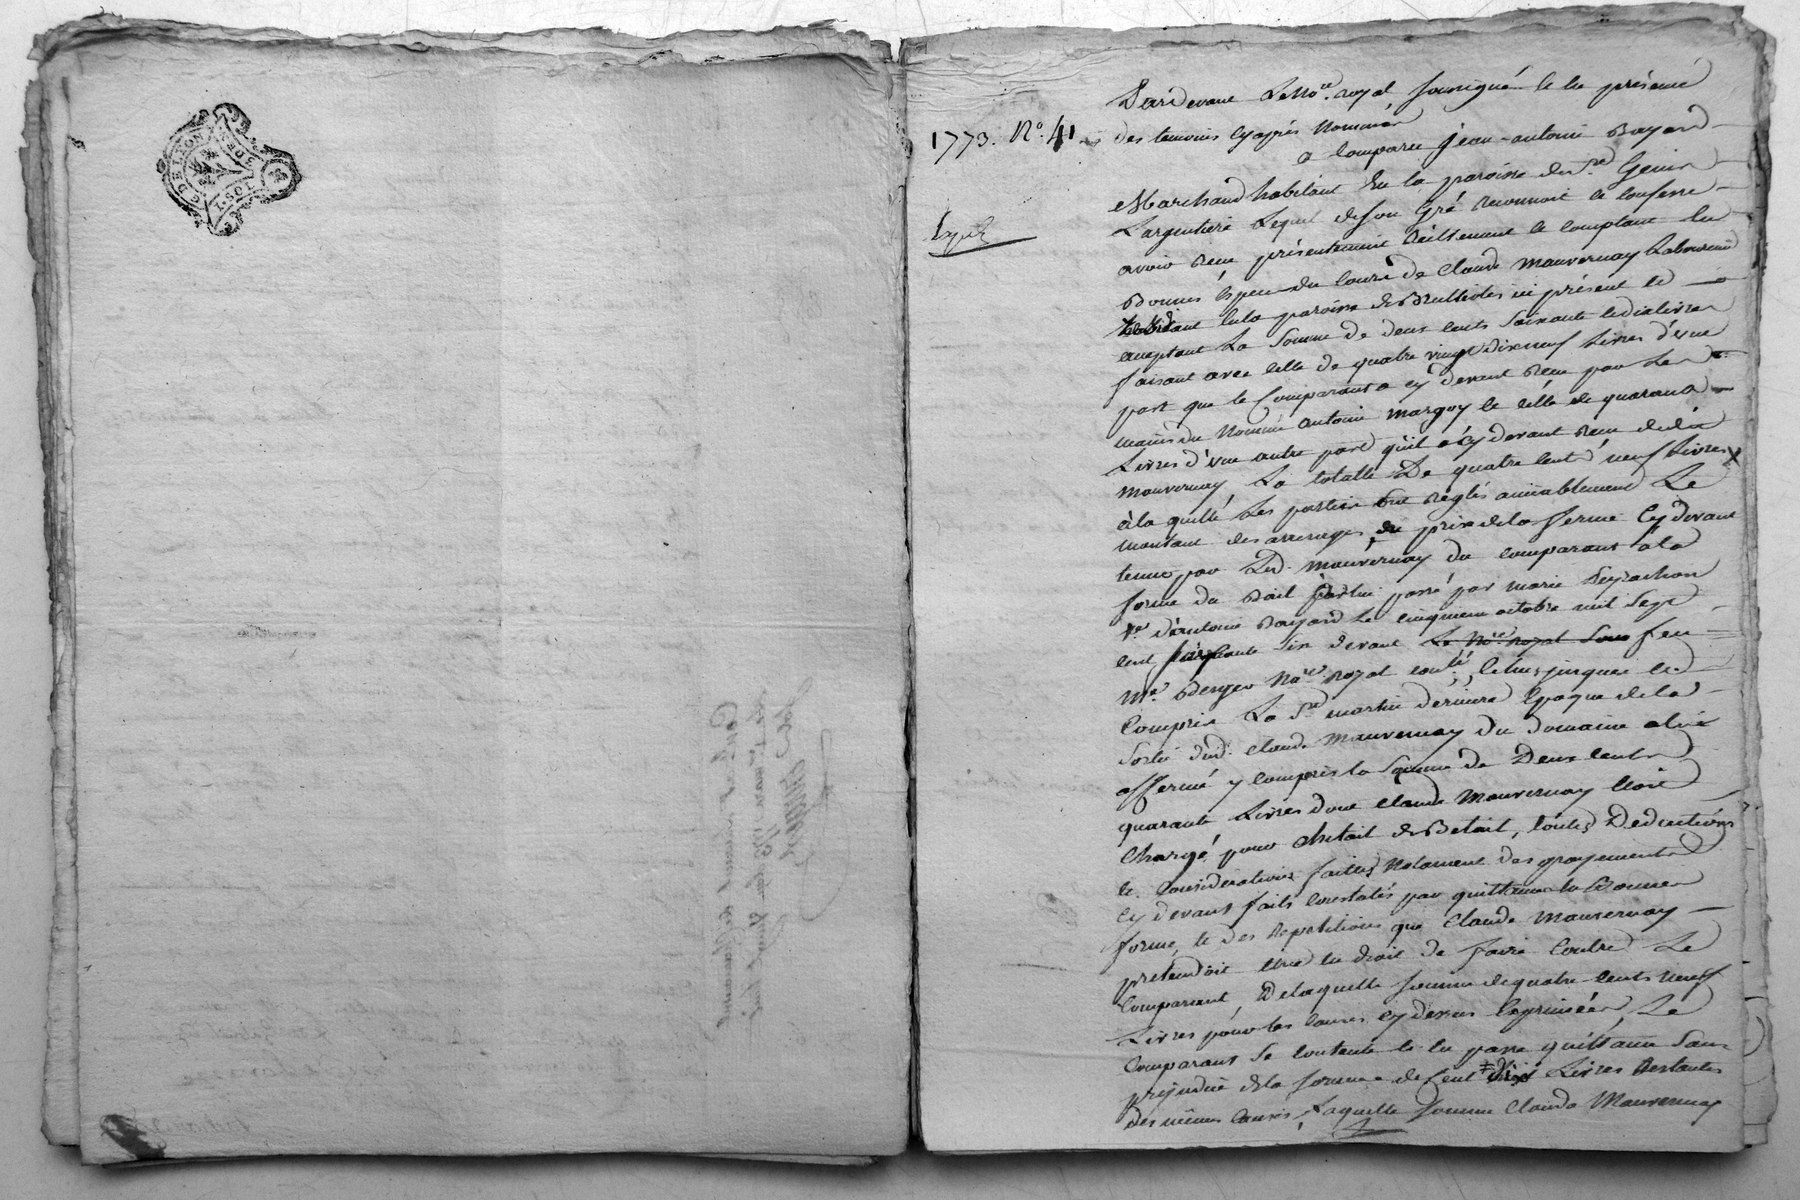 G. DE LYON
1. SOL
1773. N°. 41
Expé
Pardevant Le No.re royal soussigné & en présence
des temoins cyaprès Nommés
a comparu jean-antoine Bajard
Marchand habitant En la paroisse de St. Genis
Largentiere Lequel de son gré reconnoit & confesse
avoir reçu présentement réellement & comptant en
Bonnes Especes du cours de Claude Mauvernay Laboureur
habitant en la paroisse de Brullioles ici présent &
acceptant La Somme de deux cents Soixante & dix livres
faisant avec celle de quatre vingt dix neuf Livres d'une
part que le Comparant a cy devant reçu par les
mains du Nommé Antoine Margoy & celle de quarante
Livres d'une autre part qu'il a cy devant reçu dudit
Mauvernay, La totalle De quatre cents neuf Livres
à la quelle Les parties ont réglés amiablement Le
montant des arrerages du prix de la ferme cy devant
tenue par Led. Mauvernay du comparant a la
forme du Bail passé par marie Peyrachon
Ve. d'antoine Bajard Le cinquieme octobre mil Sept
cent Six devant Le No.re royal Sous feu
Me. Berger No.re royal & jusques &
Compris La St. martin derniere Epoque de la
Sortie dud. Claude Mauvernay du Domaine a lui
affermé y compris la Somme de Deux cents
quarante Livres dont Claude Mauvernay Etoit
Chargé pour Chetail de Betail, toutes Deductions
& Considerations faittes Notament des payements
cy devant faits constatés par quittances en Bonne
forme, & des repetitions que Claude Mauvernay
pretendoit Etre en droit de faire Contre Le
Comparant, De laquelle somme de quatre cents neuf
Livres pour les causes cy dessus Exprimées, Le
Comparant Se contente & en passe quittance Sans
prejudice de la somme de Cent dix Livres Restantes
des mêmes causes, Laquelle somme Claude Mauvernay